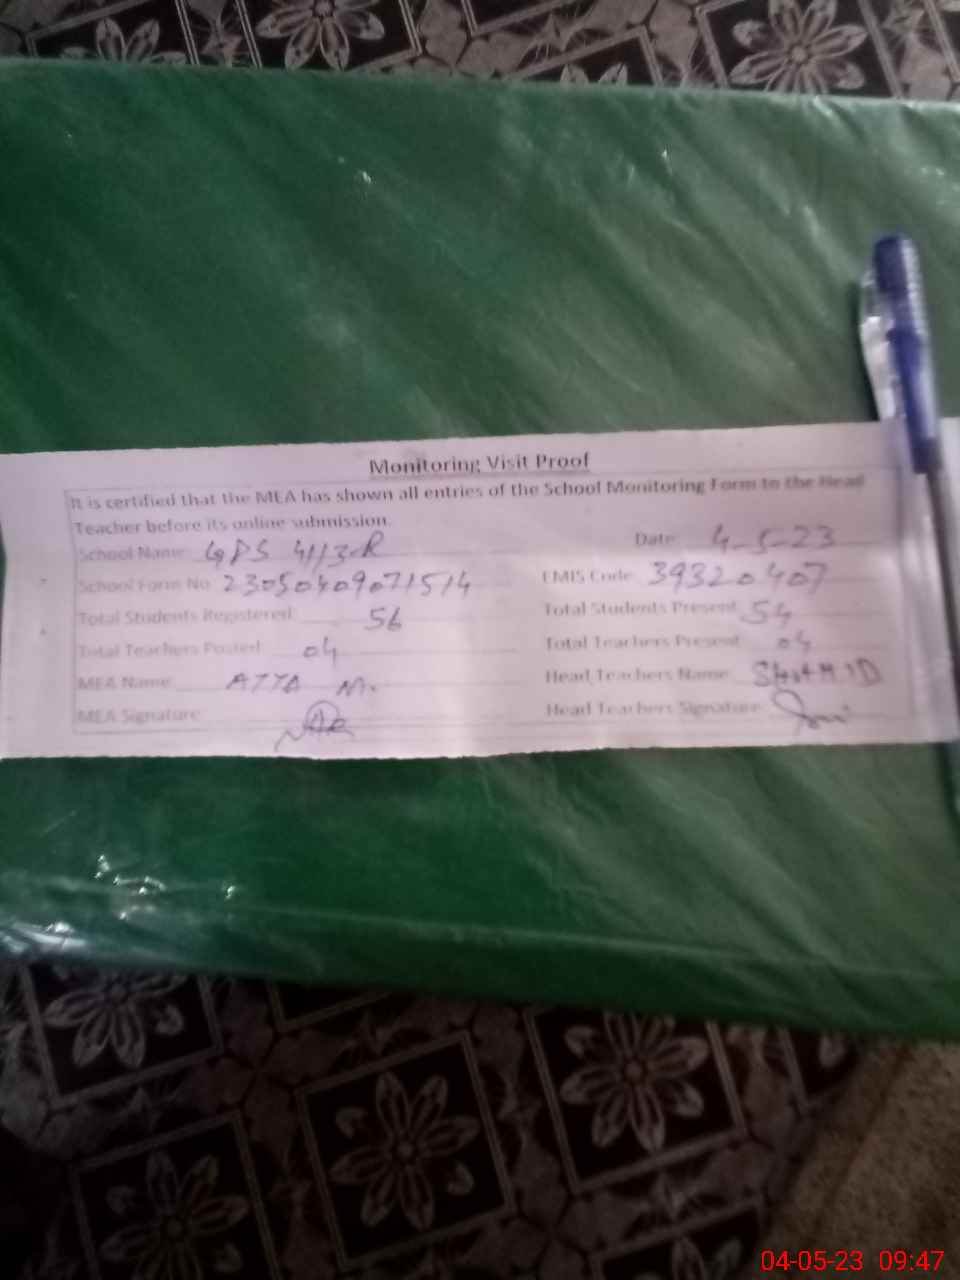 Monitoring Visit Proof
It is certified that the MEA has shown all entries of the School Monitoring Form to the Head
Teacher before its online submission.
School Name GPS 4113-R Date 4-5-23
School Form No 23050409071514 EMIS Code 39320407
Total Students Registered 56 Total Students Present 54
Total Teachers Posted 04 Total Teachers Present 04
MEA Name ATTA M. Head Teachers Name
MEA Signature Head Teachers Signature
04-05-23 09:47